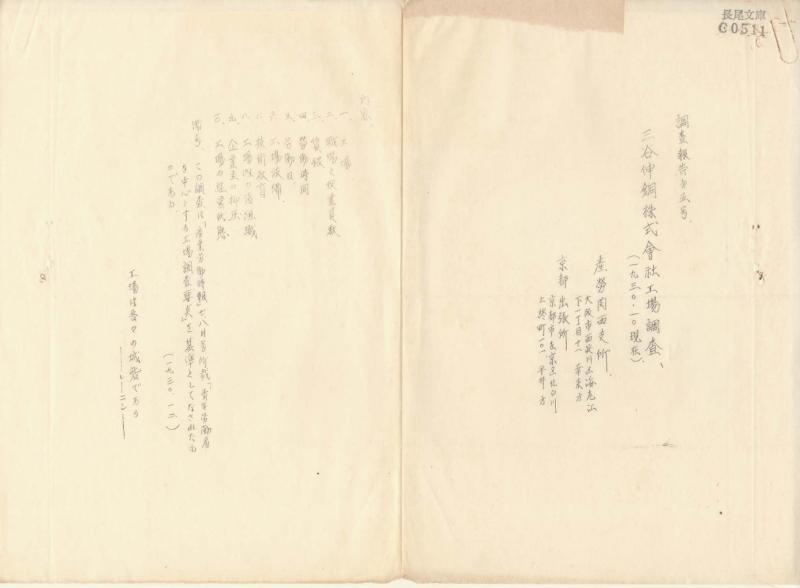 長尾文庫
C0511
調査報告第五号、
三谷伸銅株式會社工場調査、
(一九三〇・一〇現在)
産労関西支所、
大阪市西淀川区海老江
下一丁目十一 方
京都出張所
京都市左京区北白川
上終町一〇一 平井方
内容、
一、工場
二、職場と従業員数
三、賃銀
四、労働時間
五、労働日
六、工場設備
七、技術教育
八、工場内の諸組織
九、企業主の抑圧
一〇、工場の経営状態
備考、この調査は「産業労働時報」七、八月号所載、「青年労働者
を中心とする工場調査要美」を基準としてなされたも
のである。
(一九三〇、一二)
工場は吾々の城砦である
――レーニン――